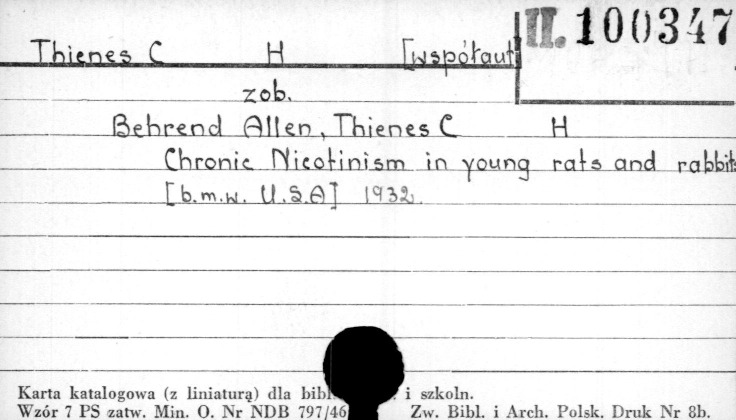 II. 100347
Thienes C H [współaut
zob.
Behrend Allen, Thienes C H
Chronic Nicotinism in young rats and rabbits
[b.m.w. U.S.A] 1932.
Karta katalogowa (z liniaturą) dla bibl. i szkoln.
Wzór 7 PS zatw. Min. O. Nr NDB 797/46 Zw. Bibl. i Arch. Polsk. Druk Nr 8b.